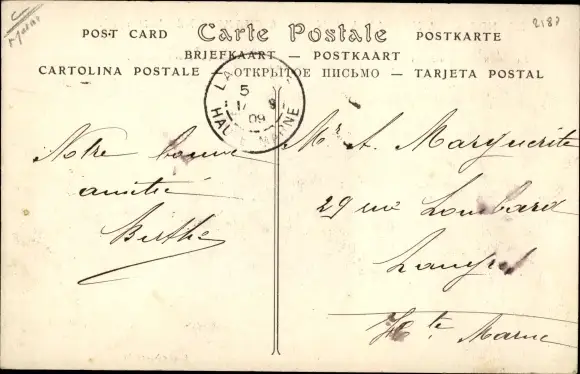 C
2187
POST CARD Carte Postale POSTKARTE
BRIEFKAART — POSTKAART
CARTOLINA POSTALE — ОТКРЫТОЕ ПИСЬМО — TARJETA POSTAL
LA
5
09
HAUTE MARNE
Notre bonne
amitié
Berthe
Mr A. Marguerite
29 rue Lombard
Langres
Hte Marne